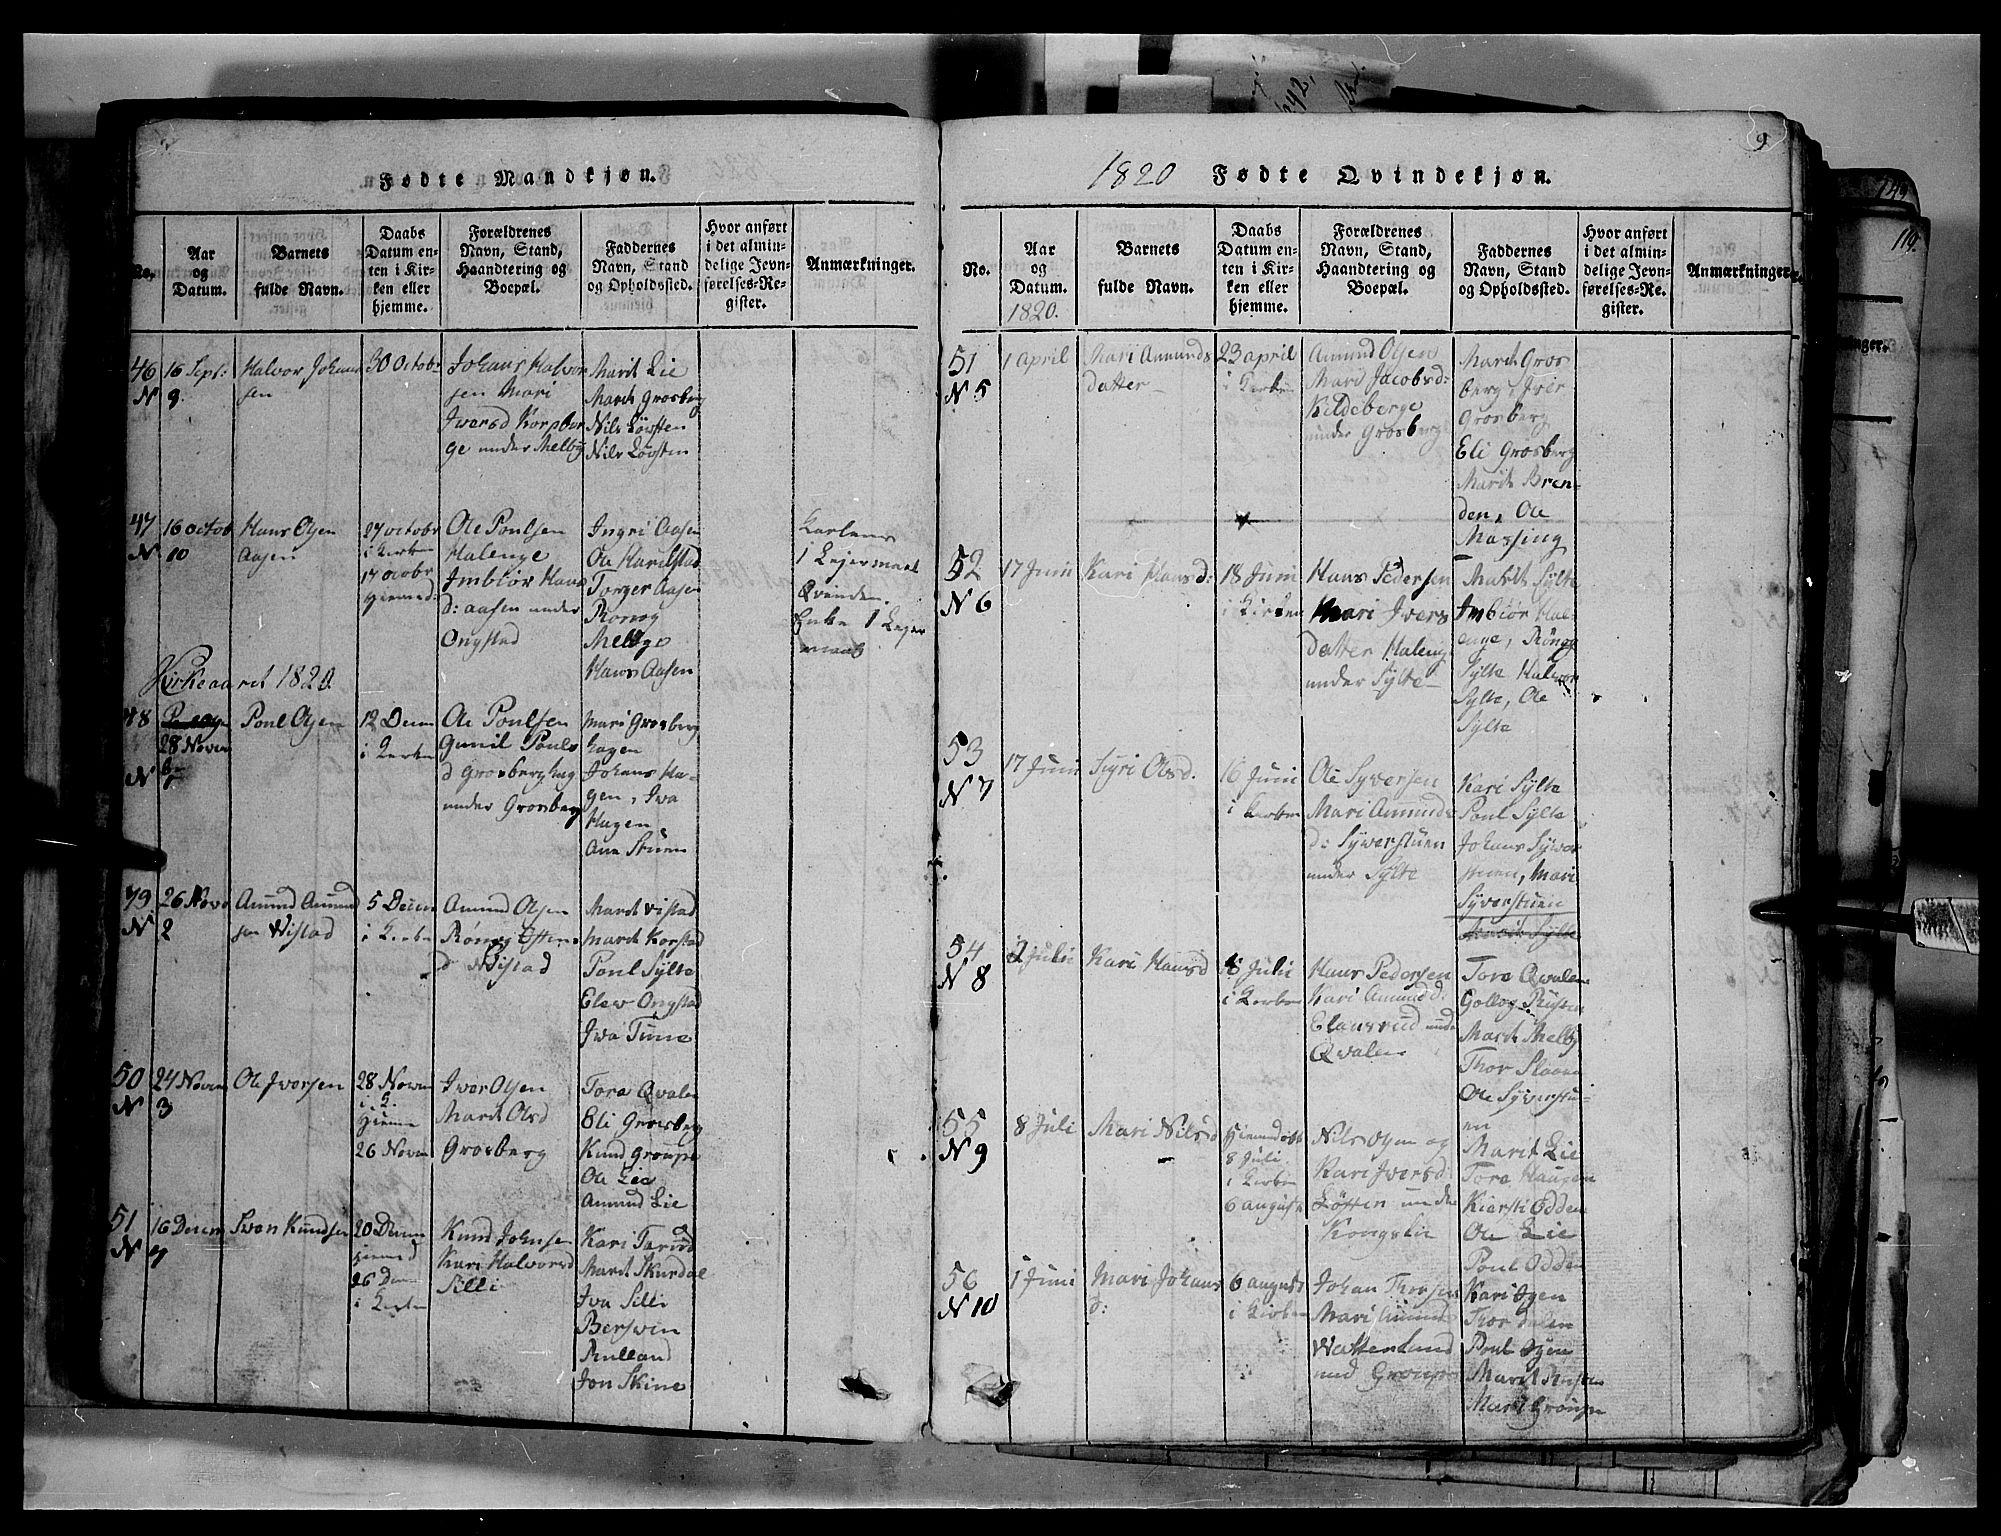 Fødte Mandkjøn.
No.
Aar
og
Datum.
Barnets
fulde Navn.
Daabs
Datum en-
ten i Kir-
ken eller
hjemme.
Forældrenes
Navn, Stand,
Haandtering og
Boepæl.
Faddernes
Navn, Stand
og Opholdssted.
Hvor anført
i det almin-
delige Jevn-
førelses-Re-
gister.
Anmærkninger.
46
N 9
16 Sept:
Halvor Johann
sen
30 Octobr
Johans Halvor
sen Mari
Iversd Korsbor
ge under Melby
Marit Lie
Marit Grosberg
Nils Løvsten
Nils Løvsten
47
N 10
16 octob
Hans Olsen
Aasen
27 octobr
i Kerken
17 ocobr
Hiemed:
Ole Poulsen
Halenge
Imbiør Hans
d: aasen under
Ongstad
Ingri Aasen
Ole Harilstad
Torger Aasen
Ronog
Melbye
Hans Aasen
Karlens
1 Lejermaal
Qvinden
Enke 1 Lejer
maal
Kirkeaaret 1820.
48
N 1
28 Novem
br
Poul Olsen
12 Decem
i Kerken
Ole Poulsen
Gunil Pouls
d Grosberghag
under Grosberg
Mari Grosberg
hagen
Johans Ha-
gen, Iva
Hagen
Ane Stuen
49
N 2
26 Nove
Amund Amund
sen Wistad
5 Decem
i Kerken
Amund Olsen
Rønog Ostens
d Wistad
Marit Vistad
Marit Korstad
Poul Sylte
Elew Ongstad
Iwa Tune
50
N 3
24 Novem
Ole Iversen
28 Novem
i K.
Hieme
26 Novem
Iver Olsen
Marit Olsd
Grosberg
Tora Qvalen
Eli Grosberg
Knud Groupe
Ole Lie
Amund Lie
51
N 4
16 Decem
Iwan Knudsen
20 Decem
Hiemed
26 Dem
i Kerken
Knud Johnsen
Kari Halvorsd
Silli
Kari Tarud
Marit Skurdal
Iva Silli
Berswen
Rulland
Jon Skine
1820 Fødte Qvindekjøn.
9
No.
Aar
og
Datum.
1820.
Barnets
fulde Navn.
Daabs
Datum en-
ten i Kir-
ken eller
hjemme.
Forældrenes
Navn, Stand,
Haandtering og
Boepæl.
Faddernes
Navn, Stand
og Opholdssted.
Hvor anført
i det almin-
delige Jevn-
førelses-Re-
gister.
Anmærkninger.
51
N 5
1 April
Mari Amunds
datter
23 april
i Kerken
Amund Olsen
Mari Jacobsd:
Kildeberge
under Grosberg
Marit Gros
berg, Iver
Grosberg
Eli Grosberg
Marit Bren-
den, Ole
Massing
52
N 6
17 Juni
Kari Hansd:
18 Juni
i Kirken
Hans Pedersen
Mari Ivers
datter Haleng
under Sylte
Marit Sylte
Imbiør Hal-
enge, Rønog
Sylte Halvor
Sylte, Ole
Sylte
53
N 7
17 Juni
Sigri Olsd.
16 Juni
i Kerken
Ole Syversen
Mari Amunds
d: Syverstuen
under Sylte
Kari Sylte
Poul Sylte
Johans Sywer
stuen, Mari
Syverstuen
54
N 8
2 Juli
Kari Hansd
8 Juli
i Kerken
Hans Pedersen
Kari Amundd:
Elansrud unde
Qvalen
Tora Qvalen
Gollog Rusten
Marit Melby
Thor Slaaen
Ole Syverstu-
en
55
N 9
8 Juli
Mari Nilsd
Hiemedøbt
8 Juli
i Kerken
6 august
Nils Olsen og
Kari Iversd:
Løsten unde
Kongslie
Marit Lie
Tora Haugen
Kiersti Odden
Ole Lie
Poul Odden
56
N 10
1 Juni
Mari Johans
d:
6 august
i Kerken
Johan Thorsen
Mari Amund
Watterlund
und Groupe
Kari Øyen
Thor dalen
Poul Øyen
Marit Rusten
Marit Groupe
119.